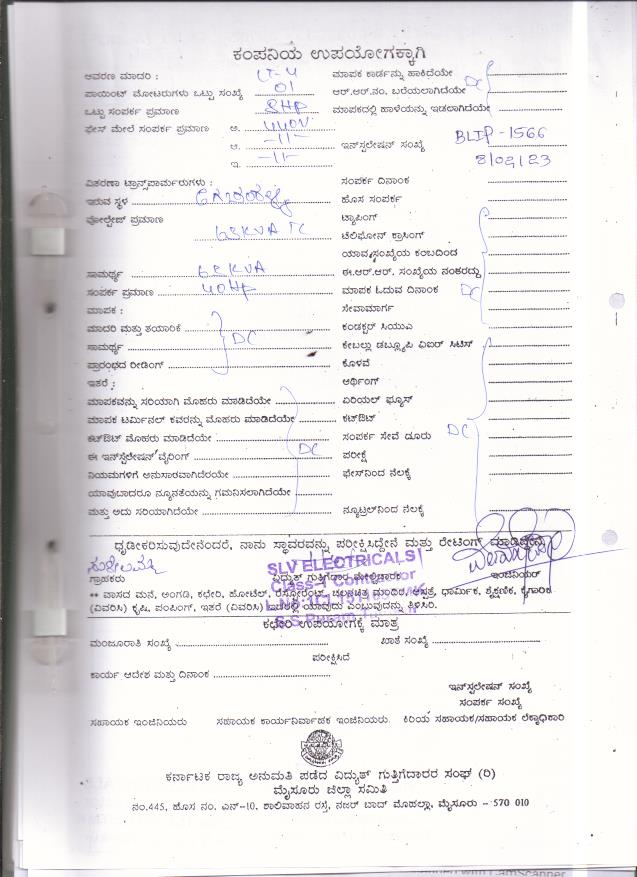 ಕಂಪನಿಯ ಉಪಯೋಗಕ್ಕಾಗಿ
ಆವರಣ ಮಾದರಿ : LT-4 ಮಾಪಕ ಕಾರ್ಡನ್ನು ಹಾಕಿದೆಯೇ
ಪಾಯಿಂಟ್ ಮೋಟರುಗಳು ಒಟ್ಟು ಸಂಖ್ಯೆ 01 ಆರ್.ಆರ್.ನಂ. ಬರೆಯಲಾಗಿದೆಯೇ DC
ಒಟ್ಟು ಸಂಪರ್ಕ ಪ್ರಮಾಣ 8HP ಮಾಪಕದಲ್ಲಿ ಹಾಳೆಯನ್ನು ಇಡಲಾಗಿದೆಯೇ
ಫೇಸ್ ಮೇಲೆ ಸಂಪರ್ಕ ಪ್ರಮಾಣ ಅ. 440V
ಆ. -11- ಇನ್‌ಸ್ಟಲೇಷನ್ ಸಂಖ್ಯೆ BLIP-1566
ಇ. -11- 8/02/23
ವಿತರಣಾ ಟ್ರಾನ್ಸ್‌ಫಾರ್ಮರುಗಳು : ಸಂಪರ್ಕ ದಿನಾಂಕ
ಇರುವ ಸ್ಥಳ ಹೊಸ ಸಂಪರ್ಕ
ವೋಲ್ಟೇಜ್ ಪ್ರಮಾಣ ಟ್ಯಾಪಿಂಗ್
63KVA TC ಟೆಲಿಫೋನ್ ಕ್ರಾಸಿಂಗ್
ಯಾವ ಸಂಖ್ಯೆಯ ಕಂಬದಿಂದ
ಸಾಮರ್ಥ್ಯ 63KVA ಈ.ಆರ್.ಆರ್. ಸಂಖ್ಯೆಯ ನಂತರದ್ದು
ಸಂಪರ್ಕ ಪ್ರಮಾಣ 40HP ಮಾಪಕ ಓದುವ ದಿನಾಂಕ DC
ಮಾಪಕ : ಸೇವಾಮಾರ್ಗ
ಮಾದರಿ ಮತ್ತು ತಯಾರಿಕೆ ಕಂಡಕ್ಟರ್ ಸಿಯುಎ
ಸಾಮರ್ಥ್ಯ DC ಕೇಬಲ್ಲು ಡಬ್ಲ್ಯೂಪಿ ಏಐಆರ್ ಸಿಟಿಸ್
ಪ್ರಾರಂಭದ ರೀಡಿಂಗ್ ಕೊಳವೆ
ಇತರೆ : ಆರ್ಥಿಂಗ್
ಮಾಪಕವನ್ನು ಸರಿಯಾಗಿ ಮೊಹರು ಮಾಡಿದೆಯೇ ಏರಿಯಲ್ ಫ್ಯೂಸ್
ಮಾಪಕ ಟರ್ಮಿನಲ್ ಕವರನ್ನು ಮೊಹರು ಮಾಡಿದೆಯೇ ಕಟ್‌ಔಟ್
ಕಟ್‌ಔಟ್ ಮೊಹರು ಮಾಡಿದೆಯೇ ಸಂಪರ್ಕ ಸೇವೆ ದೂರು DC
ಈ ಇನ್‌ಸ್ಟಲೇಷನ್ ವೈರಿಂಗ್ DC ಪರೀಕ್ಷೆ
ನಿಯಮಗಳಿಗೆ ಅನುಸಾರವಾಗಿದೆಯೇ ಫೇಸ್‌ನಿಂದ ನೆಲಕ್ಕೆ
ಯಾವುದಾದರೂ ನ್ಯೂನತೆಯನ್ನು ಗಮನಿಸಲಾಗಿದೆಯೇ
ಮತ್ತು ಅದು ಸರಿಯಾಗಿದೆಯೇ ನ್ಯೂಟ್ರಲ್‌ನಿಂದ ನೆಲಕ್ಕೆ
ಧೃಡೀಕರಿಸುವುದೇನೆಂದರೆ, ನಾನು ಸ್ಥಾವರವನ್ನು ಪರೀಕ್ಷಿಸಿದ್ದೇನೆ ಮತ್ತು ರೇಟಿಂಗ್ ಮಾಡಿದ್ದೇನೆ
SLV ELECTRICALS
ಗ್ರಾಹಕರು ವಿದ್ಯುತ್ ಗುತ್ತಿಗೆದಾರ ಮೇಲ್ವಿಚಾರಕ ಇಂಜಿನಿಯರ್
Class-1 Contractor
** ವಾಸದ ಮನೆ, ಅಂಗಡಿ, ಕಛೇರಿ, ಹೋಟೆಲ್, ರೆಸ್ಟೋರೆಂಟ್, ಚಲನಚಿತ್ರ ಮಂದಿರ, ಆಸ್ಪತ್ರೆ, ಧಾರ್ಮಿಕ, ಶೈಕ್ಷಣಿಕ, ಕೈಗಾರಿಕ
(ವಿವರಿಸಿ) ಕೃಷಿ, ಪಂಪಿಂಗ್, ಇತರೆ (ವಿವರಿಸಿ) ಇದರಲ್ಲಿ ಯಾವುದು ಎಂಬುವುದನ್ನು ತಿಳಿಸಿರಿ.
ಕಛೇರಿ ಉಪಯೋಗಕ್ಕೆ ಮಾತ್ರ
ಮಂಜೂರಾತಿ ಸಂಖ್ಯೆ ಖಾತೆ ಸಂಖ್ಯೆ
ಪರೀಕ್ಷಿಸಿದೆ
ಕಾರ್ಯ ಆದೇಶ ಮತ್ತು ದಿನಾಂಕ
ಇನ್‌ಸ್ಟಲೇಷನ್ ಸಂಖ್ಯೆ
ಸಂಪರ್ಕ ಸಂಖ್ಯೆ
ಸಹಾಯಕ ಇಂಜಿನಿಯರು ಸಹಾಯಕ ಕಾರ್ಯನಿರ್ವಾಹಕ ಇಂಜಿನಿಯರು. ಕಿರಿಯ ಸಹಾಯಕ/ಸಹಾಯಕ ಲೆಕ್ಕಾಧಿಕಾರಿ
ಕರ್ನಾಟಕ ರಾಜ್ಯ ಅನುಮತಿ ಪಡೆದ ವಿದ್ಯುತ್ ಗುತ್ತಿಗೆದಾರರ ಸಂಘ (ರಿ)
ಮೈಸೂರು ಜಿಲ್ಲಾ ಸಮಿತಿ
ನಂ.445, ಹೊಸ ನಂ. ಎನ್-10, ಶಾಲಿವಾಹನ ರಸ್ತೆ, ನಜರ್ ಬಾದ್ ಮೊಹಲ್ಲಾ, ಮೈಸೂರು - 570 010